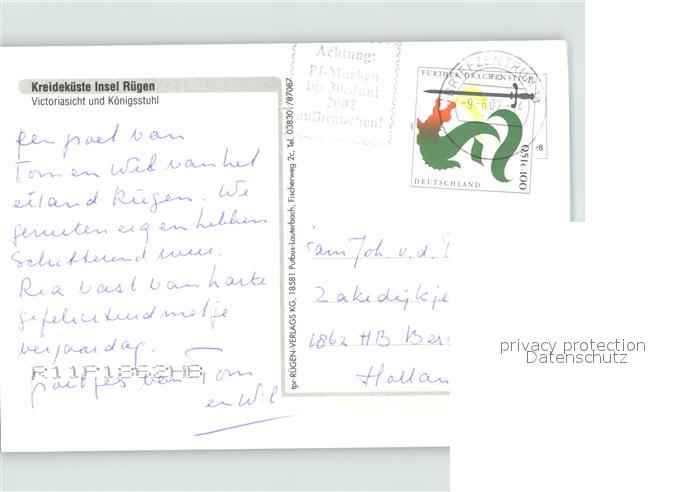 Kreideküste Insel Rügen
Victoriasicht und Königsstuhl
Een groet van
Tom en Wil van het
eiland Rügen. We
genieten en hebben
Schitterend weer.
Ria vast van harte
gefeliciteerd met je
verjaardag.
R11P1862HB
groetjes van Tom
en Wil
tpr-RÜGEN-VERLAGS KG, 18581 Putbus-Lauterbach, Fischerweg 2c, Tel. 038301/87087
Achtung:
Pf-Marken
bis 30. Juni
2002
aufbrauchen!
BRIEFZENTRUM
-9.-6.02
FURTHER DRACHENSTICH
0,51€ 100
DEUTSCHLAND
fam Joh. v.d.
Zakedijkje
1862 HB Ber
Hollan
privacy protection
Datenschutz